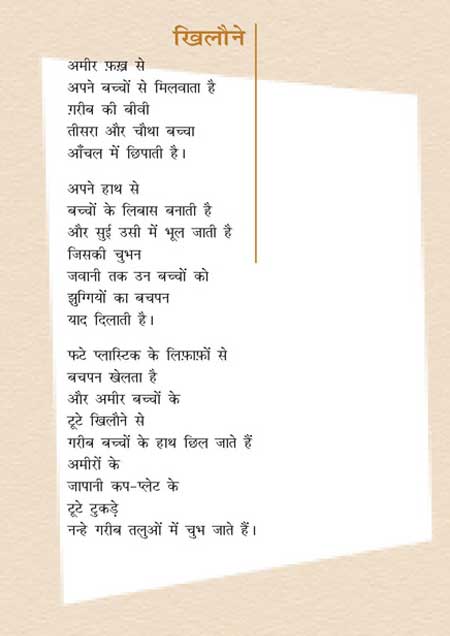 खिलौने
अमीर फ़ख़्र से
अपने बच्चों से मिलवाता है
ग़रीब की बीवी
तीसरा और चौथा बच्चा
आँचल में छिपाती है।
अपने हाथ से
बच्चों के लिबास बनाती है
और सुई उसी में भूल जाती है
जिसकी चुभन
जवानी तक उन बच्चों को
झुग्गियों का बचपन
याद दिलाती है।
फटे प्लास्टिक के लिफ़ाफ़ों से
बचपन खेलता है
और अमीर बच्चों के
टूटे खिलौने से
गरीब बच्चों के हाथ छिल जाते हैं
अमीरों के
जापानी कप-प्लेट के
टूटे टुकड़े
नन्हे गरीब तलुओं में चुभ जाते हैं।